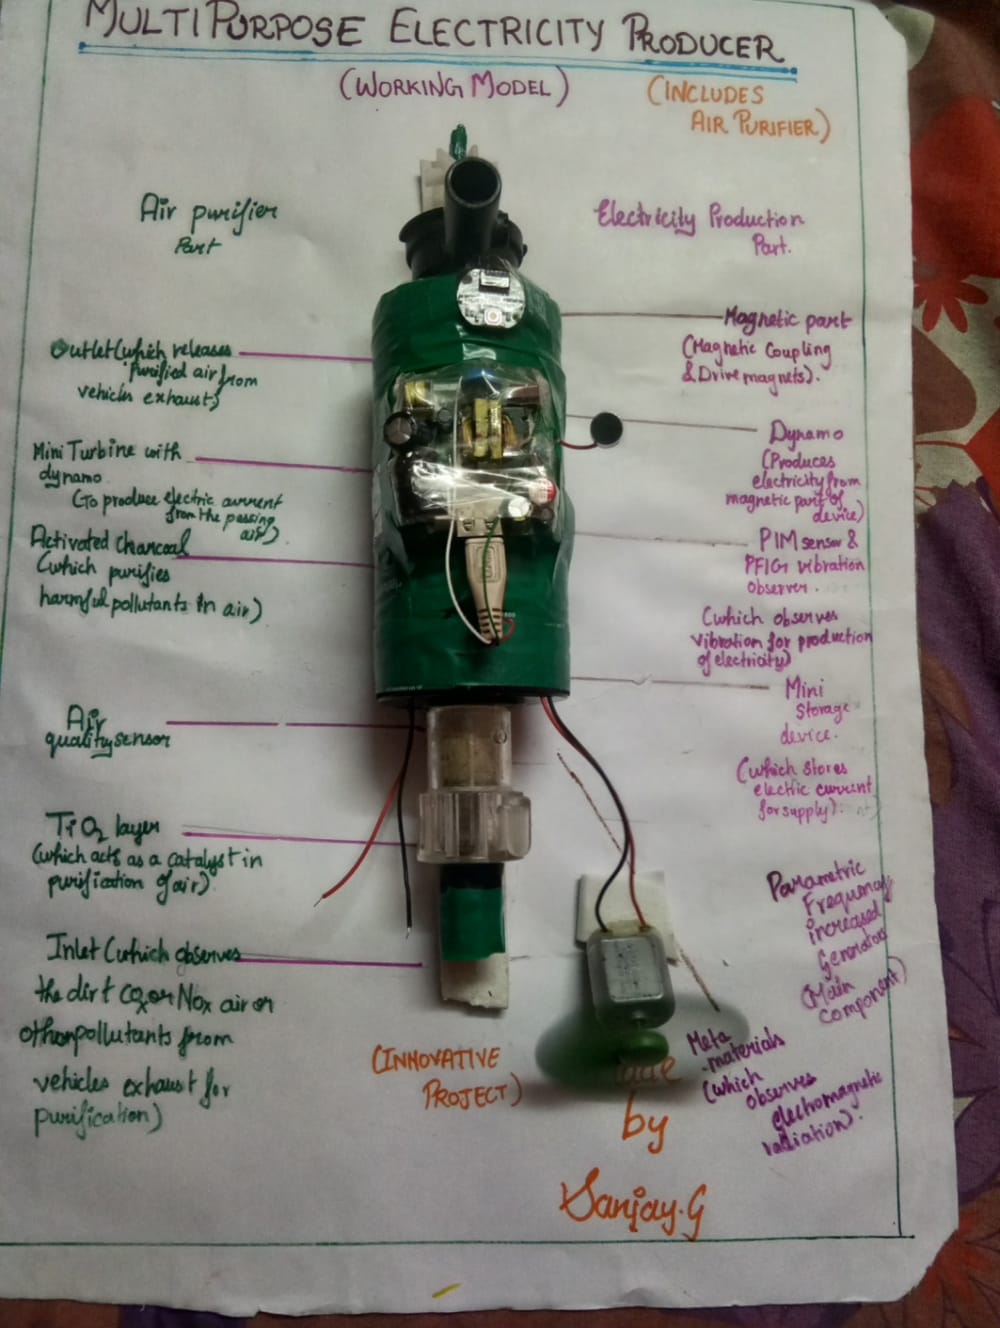 MULTIPURPOSE ELECTRICITY PRODUCER
(WORKING MODEL)
(INCLUDES
AIR PURIFIER)
Air purifier
Part
Outlet (which releases
purified air from
vehicles exhaust)
Mini Turbine with
dynamo
(To produce electric current
from the passing
air)
Activated Charcoal
(which purifies
harmful pollutants in air)
Air
quality sensor
TiO2 layer
(which acts as a catalyst in
purification of air)
Inlet (which observes
the dirt CO2 or NOx air or
other pollutants from
vehicles exhaust for
purification)
Electricity Production
Part.
Magnetic part
(Magnetic Coupling
& Drive magnets).
Dynamo
(Produces
electricity from
magnetic part of
device)
PIM sensor &
PFIG vibration
observer
(which observes
vibration for production
of electricity)
Mini
Storage
device.
(which stores
electric current
for supply).
Parametric
Frequency
increased
Generator
(Main
component)
Meta
-materials
(which
observes
electromagnetic
radiation).
(INNOVATIVE
PROJECT)
by
Sanjay.G